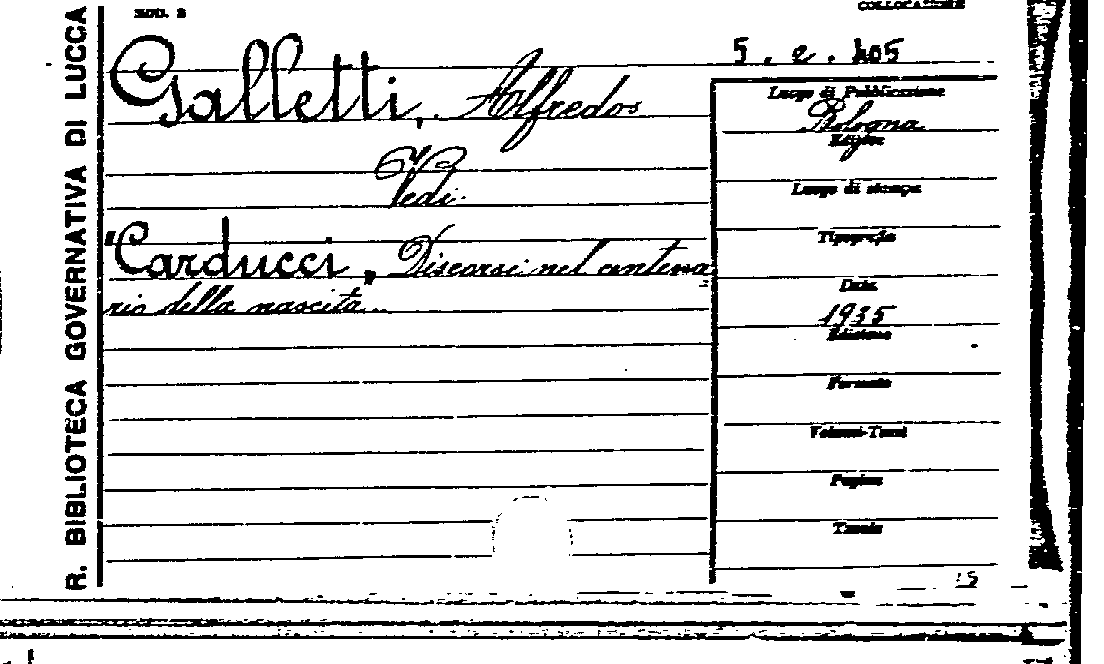 MOD. 2
COLLOCAZIONE
5. e. 105
R. BIBLIOTECA GOVERNATIVA DI LUCCA
Galletti, Alfredo
Vedi
"Carducci, Discorsi nel centena-
rio della nascita..
Luogo di Pubblicazione
Bologna
Editore
Luogo di stampa
Tipografia
Data
1935
Edizione
Formato
Volumi-Tomi
Pagine
Tavole
15